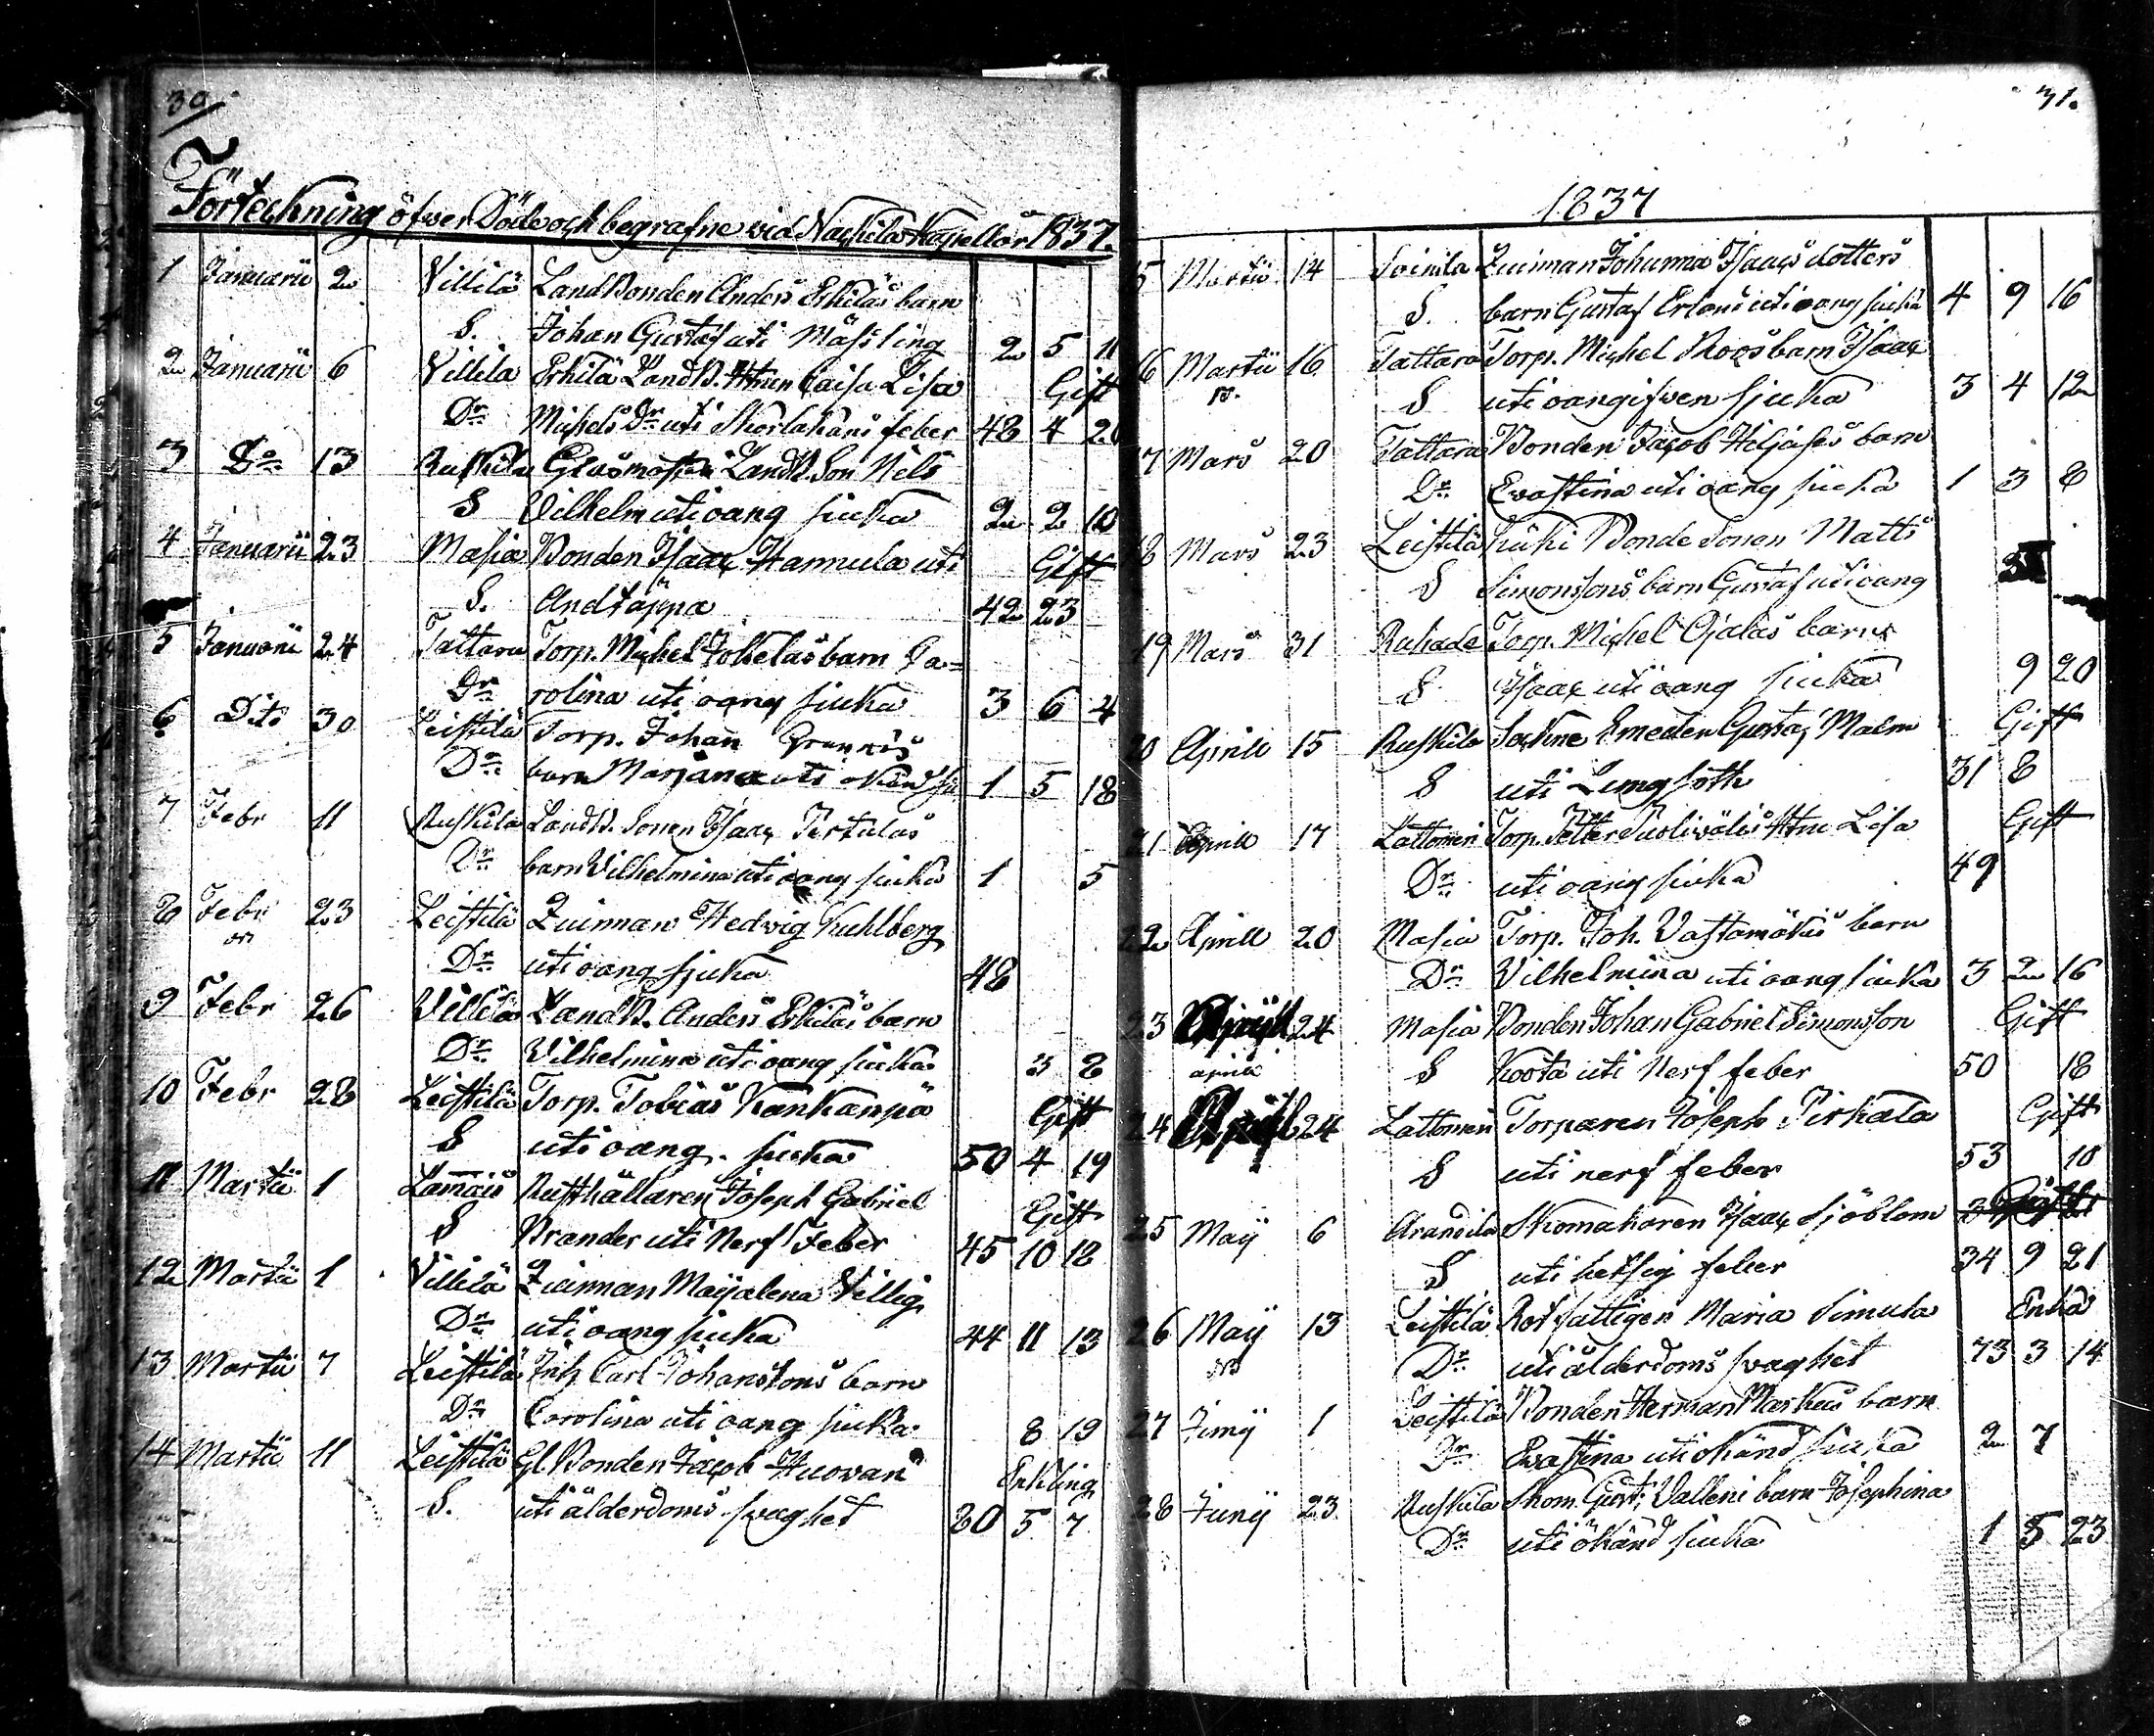 30
Förteckning öfwer Döde och begrafne wid Nackila Kapell år 1837.
1 Januarii 2 Villilä LandBonden Anders Eskilas barn
S. Johan Gustaf uti Mässling 2 5 11
2 Januarii 6 Villila Eskilä LandB. Hstrun Caisa Lisa Gift
Dr Michels Dr uti Skarlakans feber 48 4 20
3 Do 13 Ruskila LandB. Son Nils
S Vilhelm uti oang siuka 2 2 10
4 Januarii 23 Masia Bonden Isaac Hannula uti Gift
S. Andtäppa 42 23
5 Januarii 24 Tattara Torp. Michel Jokelas barn Ca=
Dr rolina uti oang siuka 3 6 4
6 Dito 30 Leistilä Torp. Johan
Dr barn Marjana uti okänd 1 5 18
7 Febr 11 Ruskila LandB. Sonen Isaac Pertulas
Dr barn Vilhelmina uti oang siuka 1 5
8 Febr 23 Leistilä Quinnan Hedvig Kuhlberg
Dr uti oang sjuka 48
9 Febr 26 Villila LandB. Anders Eskilas barn
Dr Vilhelmina uti oang siuka 3 8
10 Febr 28 Leistilä Torp. Tobias Kankanpä Gift
S uti oang. siuka 50 4 19
11 Martii 1 Lamais Rusthållaren Joseph Gabriel Gift
S Brander uti Nerf Feber 45 10 12
12 Martii 1 Villilä Quinnan Maijalena Villig
Dr uti oang siuka 44 11 13
13 Martii 7 Leistilä Carl Johanssons barn
Dr Carolina uti oang siuka 8 19
14 Martii 11 Leistilä Gl Bonden Jacob Huovari Enkling
S. uti ålderdoms swaghet 80 5 7
31.
1837
15 Martii 14 Soinila Quinnan Johanna Isaacs dotters
S. barn Gustaf Erland uti oang siuka 4 9 16
16 Martii 16 Tattara Torp. Michel Roos barn Isaac
S uti oangifven sjuka 3 4 12
17 Mars 20 Tattara Bonden Jacob barn
Dr Evastina uti oang siuka 1 3 8
18 Mars 23 Leistilä Kiiki Bonde Sonen Matts
S Simonssons barn Gustaf uti oang
19 Mars 31 Torp. Michel Ojalas barn
S Isaac uti oang siuka 9 20
20 Aprill 15 Ruskila Gustaf Malm Gift
S uti Lungsoth 31 8
21 Aprill 17 Lattomeri Torp. Petter Hstru Lisa Gift
Dr uti oang siuka 49
22 Aprill 20 Masia Torp. Joh. Vastamäkis barn
Dr Vilhelmina uti oang siuka 3 2 16
23 24 Masia Bonden Johan Gabriel Simonsson Gift
aprill S Koota uti Nerf feber 50 18
24 24 Lattomeri Torparen Joseph Pirkala Gift
S uti nerf feber 53 10
25 Maij 6 Arandila Skomakaren Isaac Sjöblom
S uti hetsig feber 34 9 21
26 Maij 13 Leistilä Rotfattigen Maria Simula Enka
Dr uti ålderdoms swaghet 73 3 14
27 Junij 1 Leistilä Bonden Herman Markus barn
Dr Evastina uti okänd siuka 2 7
28 Junij 23 Ruskila Skom. Gust. Valleni barn Josephina
Dr uti okänd siuka 1 5 23